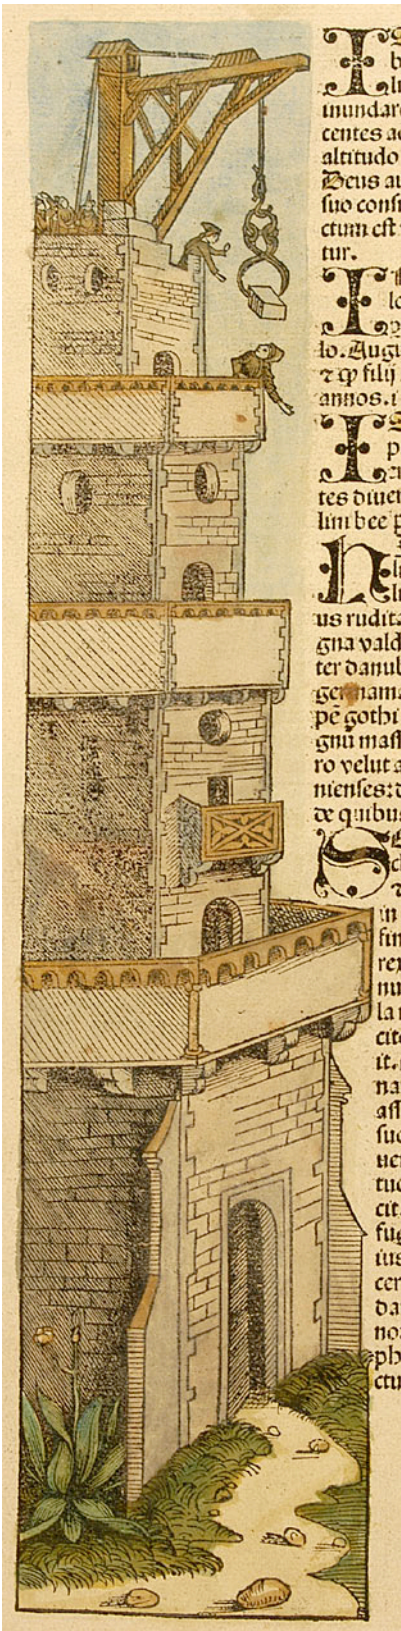 I S
b
li
inundare
centes ac
altitudo
Deus au
suo consi
ctum est
tur.
I
lo
lo. Augu
⁊ ꝙ filij
annos. i
I S
p
tes diuer
lini bee p
N
li
us rudita
gna vald
ter danub
germania
pe gothi
gnū mass
ro velut a
nienses: d
de quibus
S E
d
in
fin
rex
nu
la
cite
it.
na
ass
suo
ue
tuo
cit.
fug
ius
cer
da
no
ph
ctu